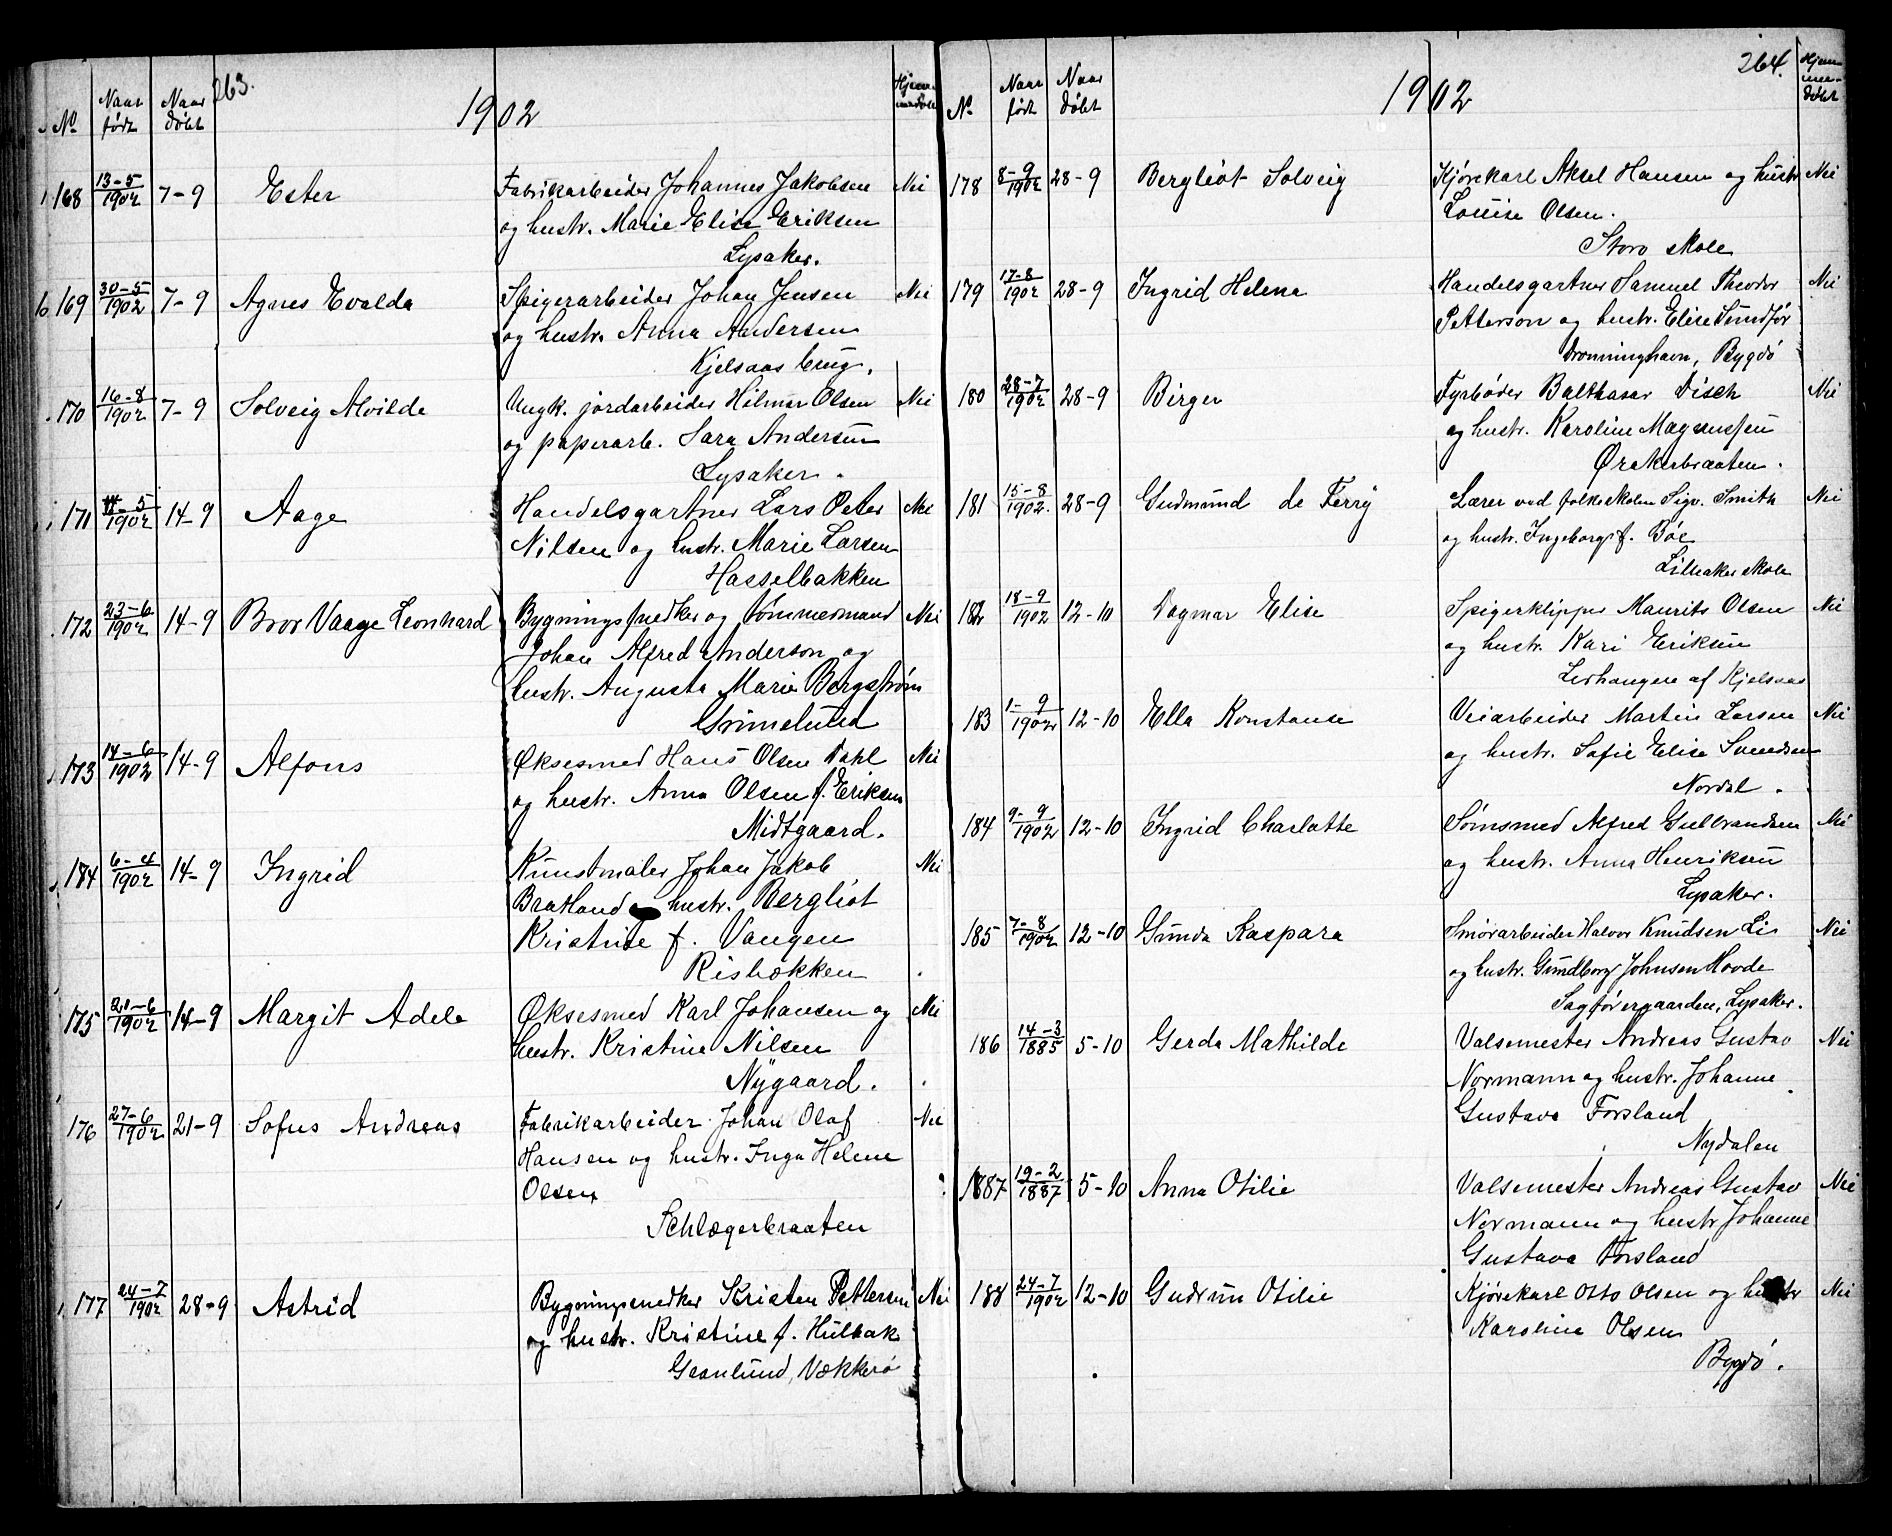 263.
No Naar født Naar døbt 1902 Hjemmedøbt
168 13-5/1902 7-9 Ester Fabrikarbeider Johannes Jakobsen Nei
og hustr. Marie Elise Eriksen
Lysaker.
169 30-5/1902 7-9 Agnes Evalda Spigerarbeider Johan Jensen Nei
og hustr. Anna Andersen
Kjelsaas brug.
170 16-8/1902 7-9 Solveig Alvilde Ungk. jordarbeider Hilmar Olsen Nei
og papirarb. Sara Andersen
Lysaker.
171 5/1902 14-9 Aage Handelsgartner Lars Peter Nei
Nilsen og hustr. Marie Larsen
Hasselbakken
172 23-6/1902 14-9 Bror Vaage Leonhard Bygningssnedker og tømmermand Nei
Johan Alfred Anderson og
hustr. Augusta Marie Bergstrøm
Grimelund
173 14-6/1902 14-9 Alfons Øksesmed Hans Olsen Dahl Nei
og hustr. Anna Olsen f. Eriksen
Midtgaard.
184 6-4/1902 14-9 Ingrid Kunstmaler Johan Jakob Nei
Bratland hustr. Bergliot
Kristine f. Vangen
Risbakken
175 21-6/1902 14-9 Margit Adele Øksesmed Karl Johansen og Nei
hustr. Kristine Nilsen
Nygaard.
176 27-6/1902 21-9 Sofus Andreas Fabrikarbeider Johan Olaf Nei
Hansen og hustr. Inga Helene
Olsen
Schlægerbraaten
177 24-7/1902 28-9 Astrid Bygningsnedker Kristen Pettersen Nei
og hustr. Kristine f. Hulbak
Granlund, Vækkerø
264.
No Naar født Naar døbt 1902 Hjemmedøbt
178 8-9/1902 28-9 Bergliot Solveig Kjørekarl Aksel Hansen og hustr Nei
Louise Olsen.
Storo skole
179 17-8/1902 28-9 Ingrid Helene Handelsgartner Samuel Theodor Nei
Petterson og hustr. Elise Sundfør
Dronninghavn, Bygdø
180 28-7/1902 28-9 Birger Fyrbøder Balthasar Disch Nei
og hustr. Karoline Magnussen
Ørakerbraaten.
181 15-8/1902. 28-9 Gudmund de Ferry Lærer ved folkeskolen Sigv. Smith Nei
og hustr. Ingeborg f. Bøe
Lilleaker skole
182 18-9/1902 12-10 Dagmar Elise Spigerklipper Maurits Olsen Nei
og hustr. Kari Eriksen
Lerhaugene af Kjelsaas
183 1-9/1902 12-10 Ella Konstanse Veiarbeider Martin Larsen Nei
og hustr. Sofie Elise Svendsen
Nordal.
184 9-9/1902 12-10 Ingrid Charlotte Sømsmed Alfred Gulbrandsen Nei
og hustr. Anna Henriksen
Lysaker.
185 7-8/1902 12-10 Gunda Kaspara Smørarbeider Halvor Knudsen Li Nei
og hustr. Gundborg Johnsen Hovde
Sagførergaarden, Lysaker.
186 14-3/1885 5-10 Gerda Mathilde Valsemester Andreas Gustav Nei
Normann og hustr. Johanne
Gustava Forsland
Nydalen
1887 19-2/1887 5-10 Anna Otilie Valsemester Andreas Gustav Nei
Normann og hustr Johanne
Gustava Forsland
188 24-7/1902 12-10 Gudrun Otilie Kjørekarl Otto Olsen og hustr Nei
Karoline Olsen
Bygdø.